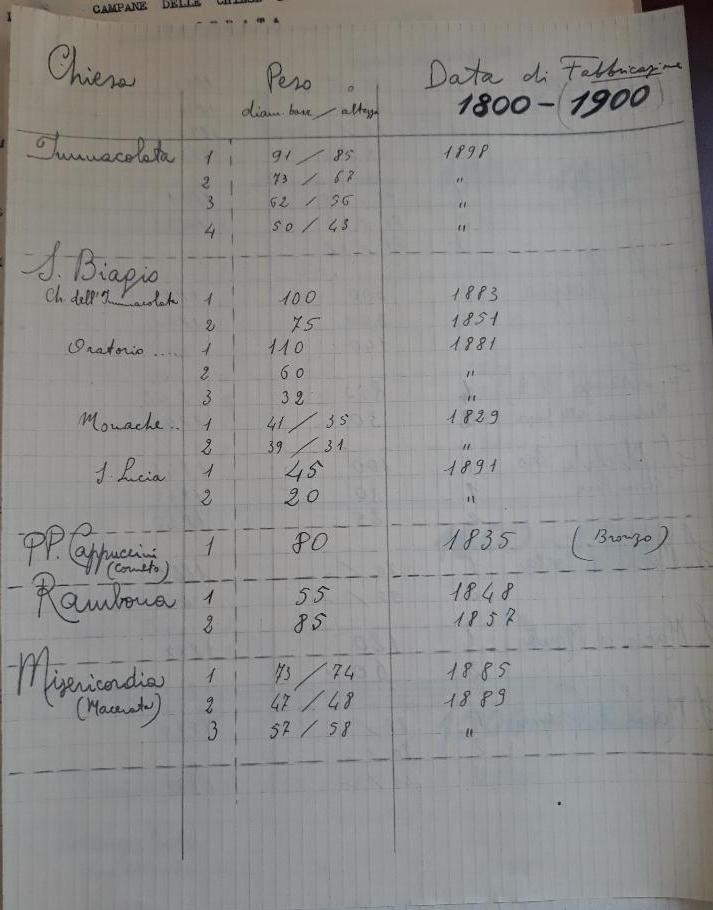 CAMPANE DELLE CHIESE
Chiesa Peso o Data di Fabbricazione
diam. base / altezza 1800 - (1900)
Immacolata 1 91 / 85 1898
2 73 / 67 "
3 62 / 56 "
4 50 / 43 "
S. Biagio
Ch. dell'Immacolata 1 100 1883
2 75 1851
Oratorio .... 1 110 1881
2 60 "
3 32 "
Monache .. 1 41 / 35 1829
2 39 / 31 "
S. Lucia 1 45 1891
2 20 "
PP. Cappuccini 1 80 1835 (Bronzo)
(Corneto)
Rambona 1 55 1848
2 85 1857
Misericordia 1 73 / 74 1885
(Macerata) 2 47 / 48 1889
3 57 / 58 "